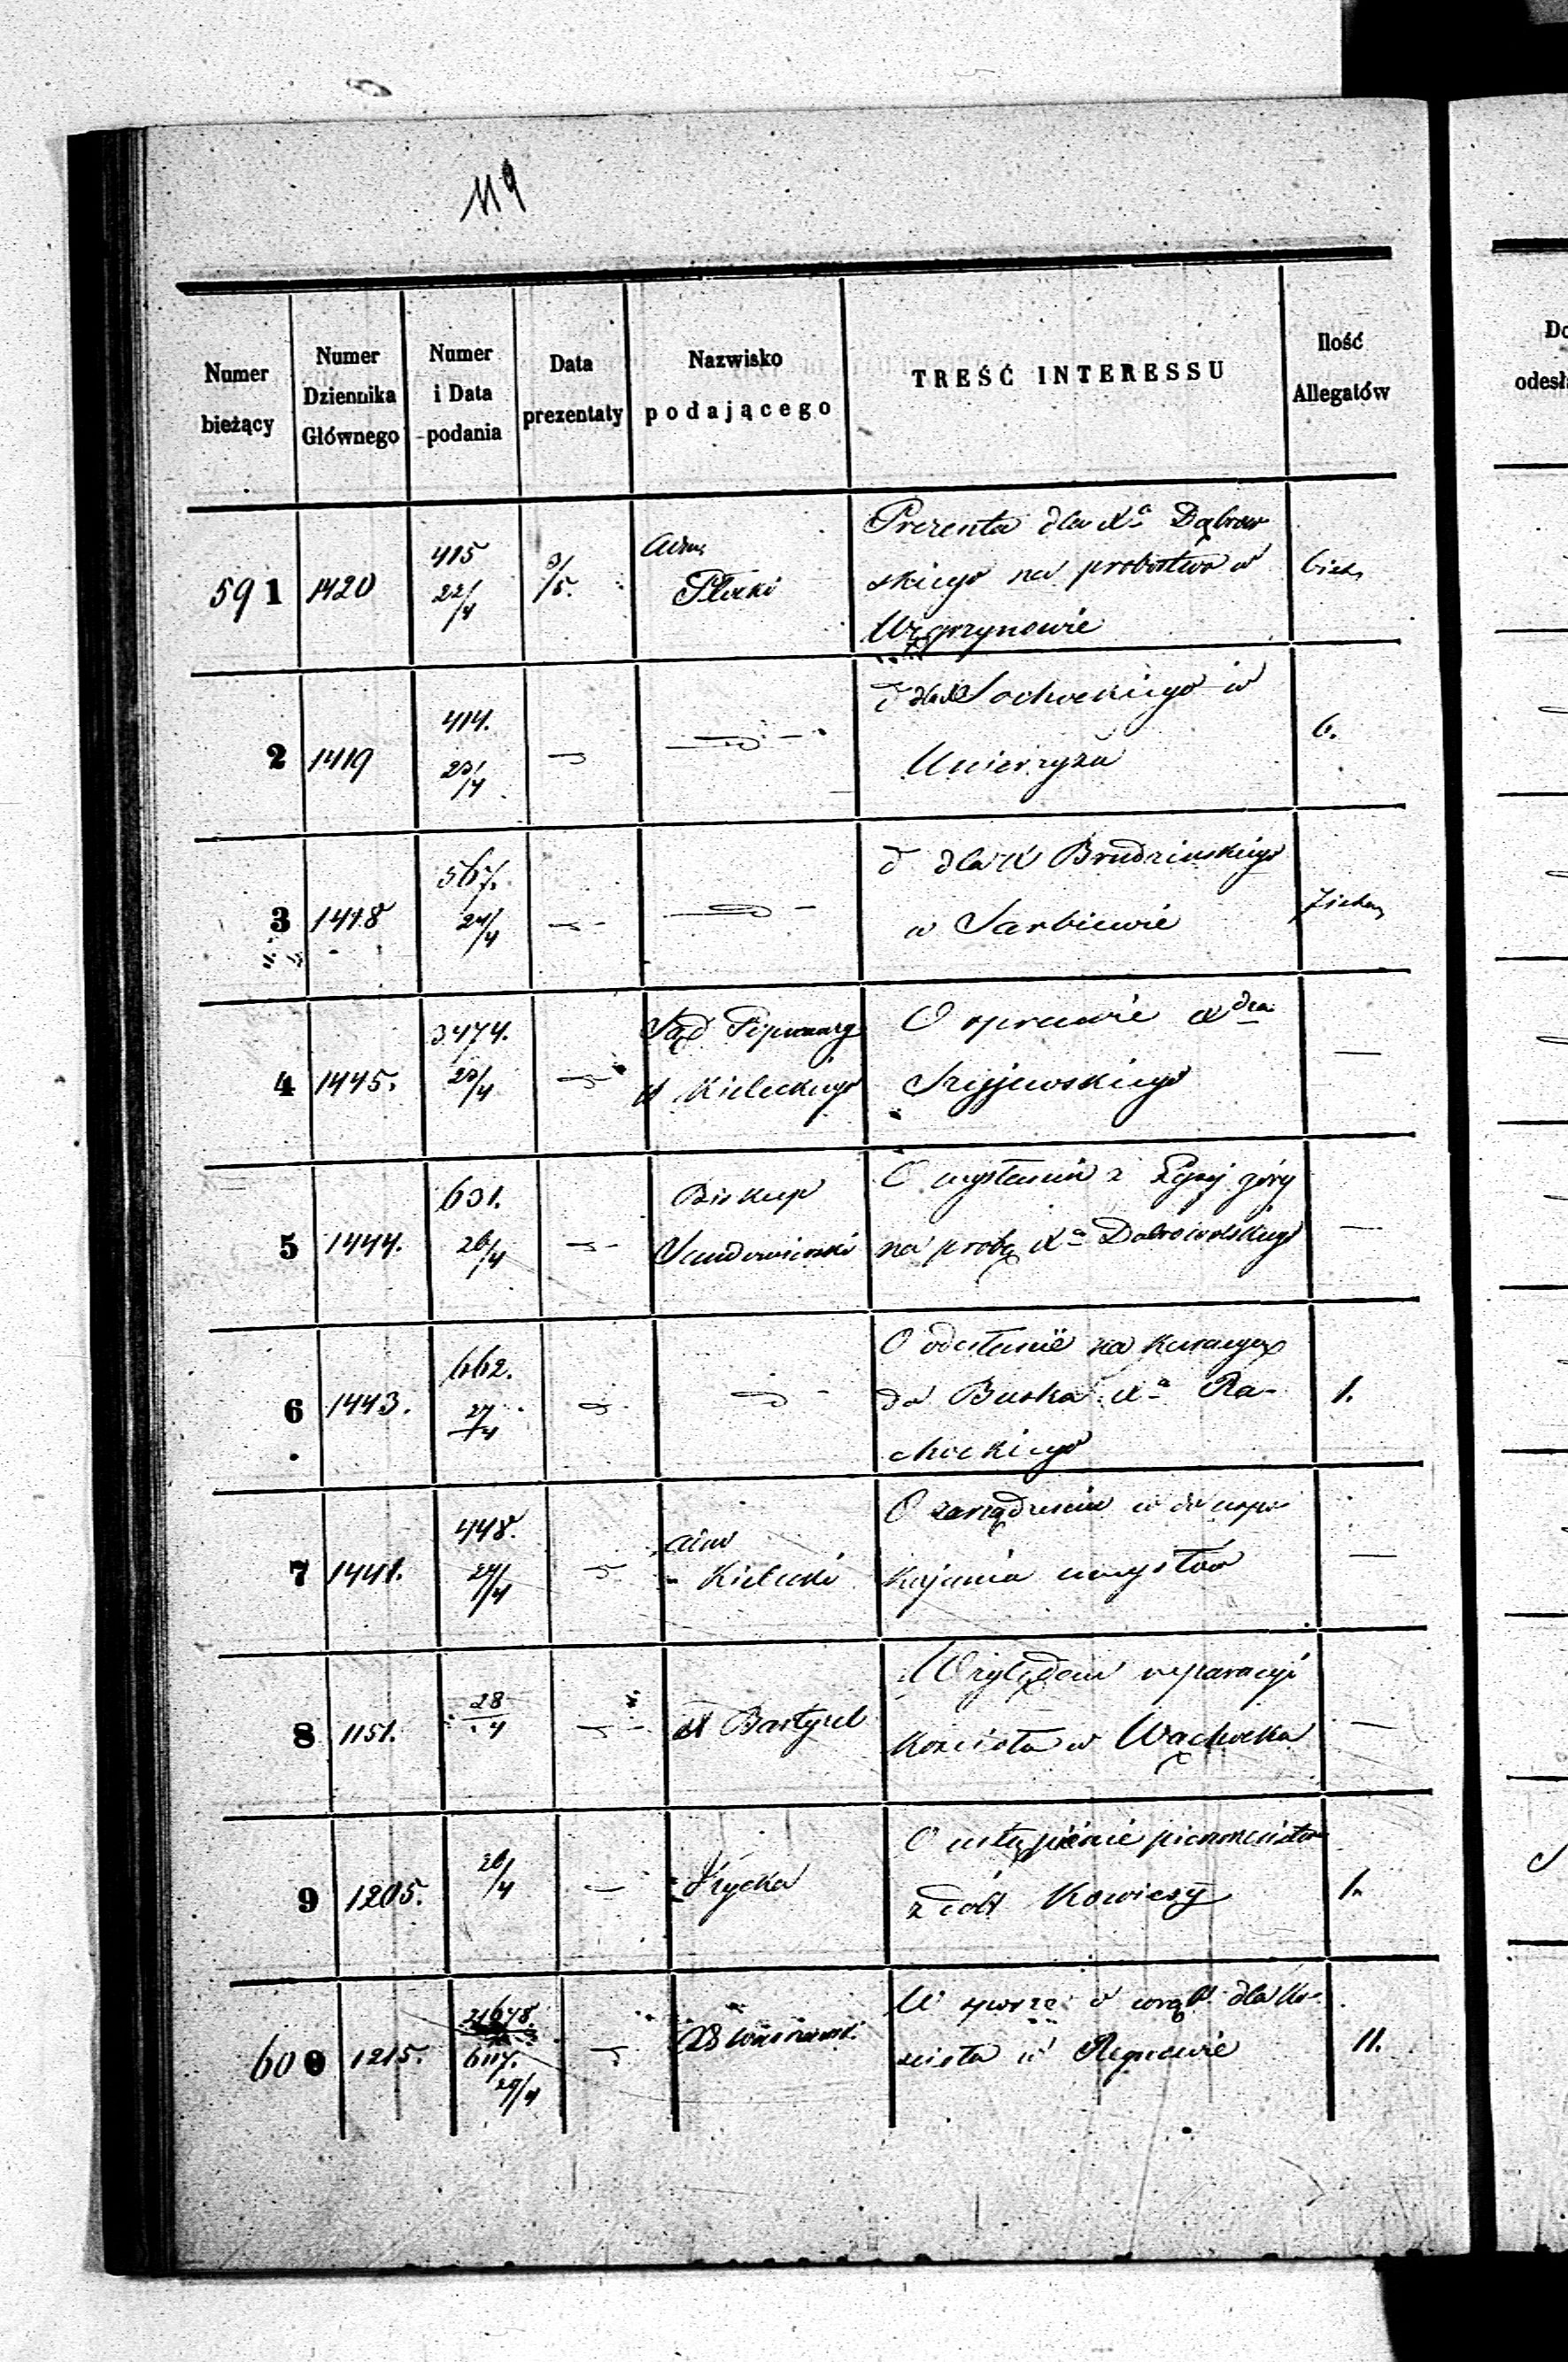 119
Numer bieżący
Numer Dziennika Głównego
Numer i Data podania
Data prezentaty
Nazwisko podającego
TREŚĆ INTERESSU
Ilość Allegatów
Do
odesł
591 1420 415 22/4 3/5. Adm. Płocki
Prezenta dla Xa Dąbrow
skiego na probostwo w
Węgrzynowie
2 1419 414. 23/4
d dla X Sochockiego w
Unierzyżu
6.
3 1418 567. 24/4
d dla X Brudzinskiego
w Sarbiewie
4 1445. 3474. 23/4 Sąd Popraw
Kieleckiego
O sprawie
—
5 1444. 631. 26/4 Biskup
Sandomierski
O wysłanie z Łysej góry
na probę Xa Dobrowolskiego
—
6 1443. 662. 27/4
O odesłanie na kuracyę
do Buska Xa Ra-
chockiego
1.
7 1441. 448. 24/4 Adm
Kielecki
O zarządzenie w
kojenia umysłów
—
8 1151. 28/4 X Bartyzel
Względem reparacyi
kościoła w Wąchocku
—
9 1205. 26/4 Życka
O ustąpienie pierwszeństwa
z dóbr Kowiesy
1.
600 1215. 21678. 6117. 29/4
W sporze o dla Ko-
scioła w Regnowie
11.